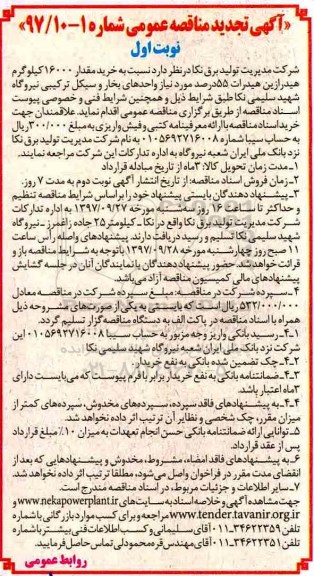 «آگهی تجدید مناقصه عمومی شماره ۱-۹۷/۱۰»
نوبت اول
شرکت مدیریت تولید برق نکا در نظر دارد نسبت به خرید مقدار ۱۶۰۰۰ کیلوگرم
هیدرازین هیدرات ۵۵ درصد مورد نیاز واحدهای بخار و سیکل ترکیبی نیروگاه
شهید سلیمی نکا طبق شرایط ذیل و همچنین شرایط فنی و خصوصی پیوست
اسناد مناقصه از طریق برگزاری مناقصه عمومی اقدام نماید. علاقمندان جهت
خرید اسناد مناقصه با ارائه معرفینامه کتبی و فیش واریزی به مبلغ ۳۰۰/۰۰۰ ریال
به حساب سیبا شماره ۰۱۰۵۶۹۲۷۱۶۰۰۸ به نام شرکت مدیریت تولید برق نکا
نزد بانک ملی ایران شعبه نیروگاه به اداره تدارکات این شرکت مراجعه نمایند.
۱ـ مدت زمان تحویل کالا: ۳ ماه از تاریخ مبادله قرارداد
۲ـ زمان فروش اسناد مناقصه: از تاریخ انتشار آگهی نوبت دوم به مدت ۷ روز.
۳ـ پیشنهاد دهندگان بایستی پیشنهاد خود را براساس شرایط مناقصه تنظیم
و حداکثر تا ساعت ۱۶ روز سه شنبه مورخه ۱۳۹۷/۰۹/۲۷ به اداره تدارکات
شرکت مدیریت تولید برق نکا واقع در نکا ـ کیلومتر ۲۵ جاده زاغمرز ـ نیروگاه
شهید سلیمی نکا تسلیم و رسید دریافت دارند. پیشنهادهای واصله رأس ساعت
۱۱ صبح روز چهارشنبه مورخه ۱۳۹۷/۰۹/۲۸ با توجه به شرایط مناقصه باز و
قرائت خواهد شد. حضور پیشنهاد دهندگان یا نمایندگان آنان در جلسه گشایش
پیشنهادهای مالی کمیسیون مناقصه آزاد می باشد.
۴ـ سپرده شرکت در مناقصه: مبلغ سپرده شرکت در مناقصه معادل
۵۳۲/۰۰۰/۰۰۰ ریال است که بایستی به یکی از صورت های مشروحه ذیل
همراه با اسناد مناقصه در پاکت الف به دستگاه مناقصه گزار تسلیم گردد
۴ـ۱ـ رسید بانکی واریز وجه مزبور به حساب سیبا ۰۱۰۵۶۹۲۷۱۶۰۰۸ این
شرکت نزد بانک ملی ایران شعبه نیروگاه شهید سلیمی نکا
۴ـ۲ـ چک تضمین شده بانکی به نفع خریدار.
۴ـ۳ـ ضمانتنامه بانکی به نفع خریدار برابر با فرم پیوست که می بایست دارای
۳ ماه اعتبار باشد.
۴ـ۴ـ به پیشنهادهای فاقد سپرده، سپرده های مخدوش، سپرده های کمتر از
میزان مقرر، چک شخصی و نظایر آن ترتیب اثر داده نخواهد شد.
۵ـ توانایی ارائه ضمانتنامه بانکی حسن انجام تعهدات به میزان ۱۰٪ مبلغ قرارداد
پس از عقد قرارداد.
۶ـ به پیشنهادهای فاقد امضاء، مشروط، مخدوش و پیشنهادهایی که بعد از
انقضای مدت مقرر در فراخوان واصل می شود، مطلقا ترتیب اثر داده نخواهد شد.
۷ـ سایر اطلاعات و جزئیات مربوط، در اسناد مناقصه مندرج است.
جهت مشاهده آگهی و خلاصه اسناد به سایت های www.nekapowerplant.ir و
www.tender.tavanir.org.ir مراجعه و برای کسب موارد بازرگانی با شماره
۰۱۱-۳۴۶۲۲۳۵۹ آقای سلیمانی و کسب اطلاعات فنی بیشتر با شماره
تلفن ۰۱۱-۳۴۶۲۲۴۴۱ آقای مهندس قره محمودلی تماس حاصل فرمایید.
روابط عمومی